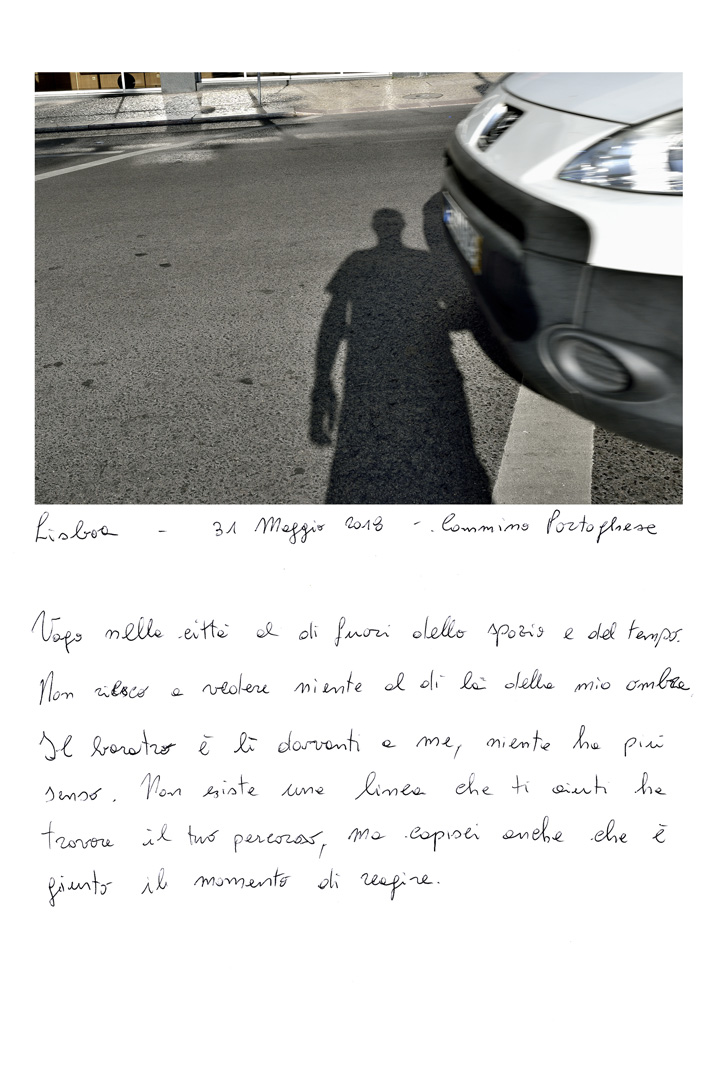 Lisboa - 31 Maggio 2018 - Cammino Portoghese
Vago nella città al di fuori dello spazio e del tempo.
Non riesco a vedere niente al di là della mio ombra
Il baratro è lì davanti a me, niente ha più
senso. Non esiste una linea che ti aiuti ha
trovare il tuo percorso, ma capisci anche che è
giunto il momento di reagire.